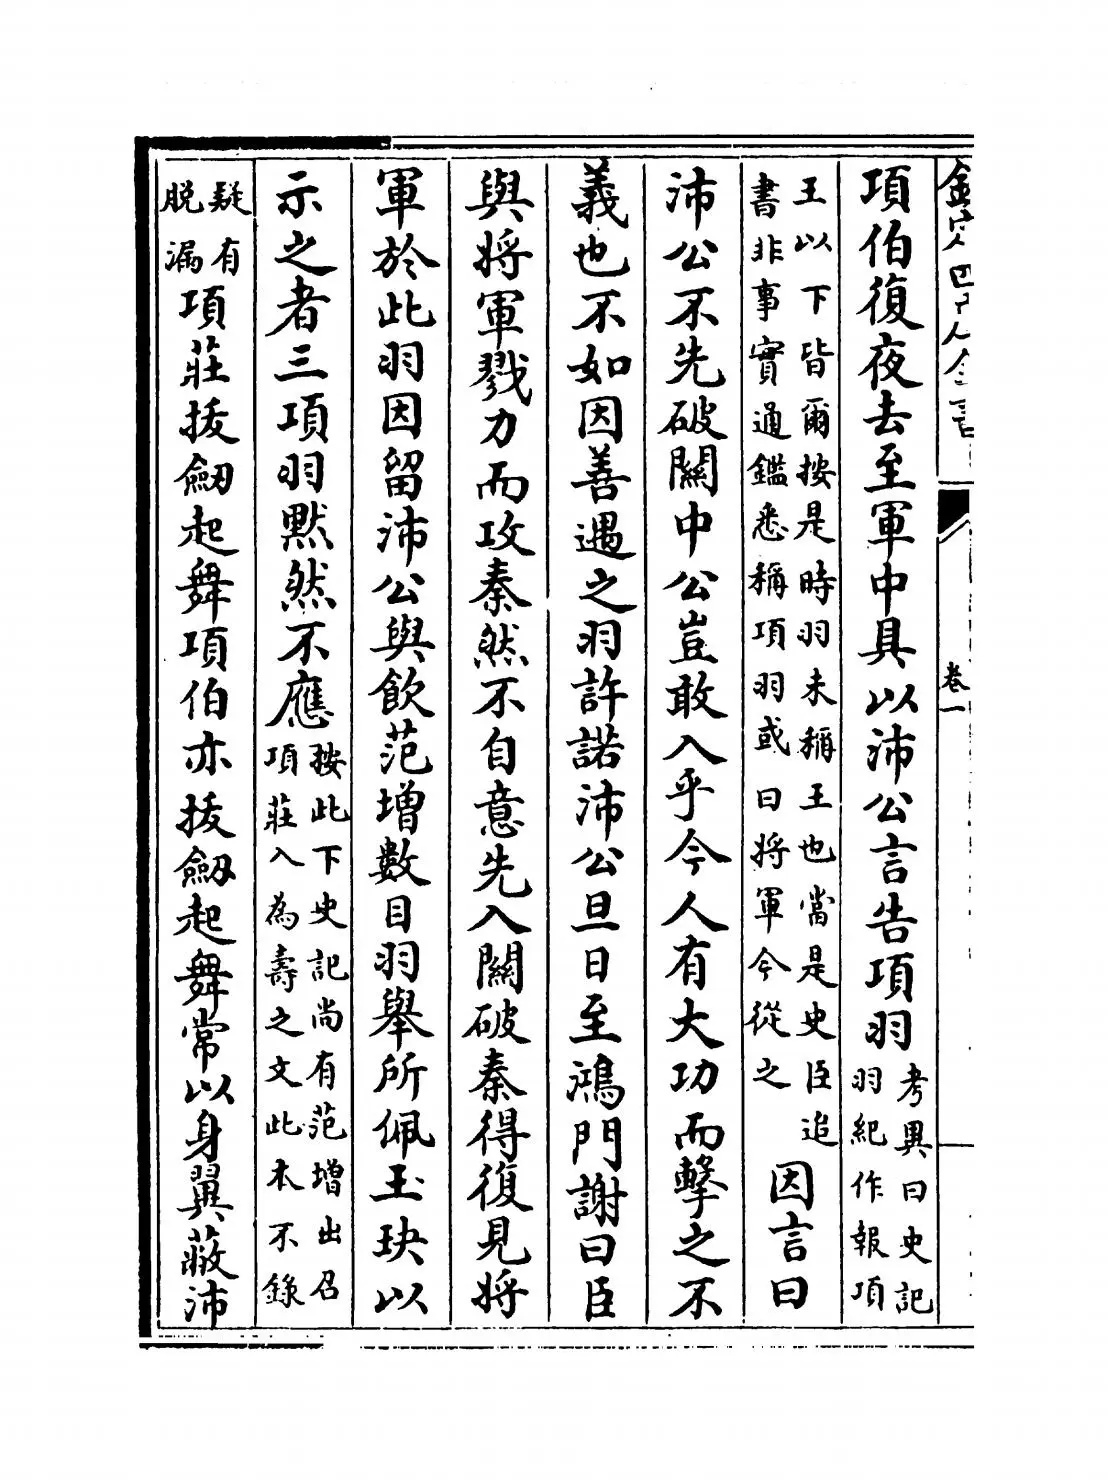 欽定四庫全書
卷一
項伯復夜去至軍中具以沛公言告項羽考異曰史記羽紀作報項
王以下皆爾按是時羽未稱王也當是史臣追書非事實通鑑悉稱項羽或曰將軍今從之因言曰
沛公不先破關中公豈敢入乎今人有大功而擊之不
義也不如因善遇之羽許諾沛公旦日至鴻門謝曰臣
與將軍戮力而攻秦然不自意先入關破秦得復見將
軍於此羽因留沛公與飲范增數目羽舉所佩玉玦以
示之者三項羽黙然不應按此下史記尚有范增出召項莊入為壽之文此本不錄
疑有脱漏項莊拔劒起舞項伯亦拔劒起舞常以身翼蔽沛